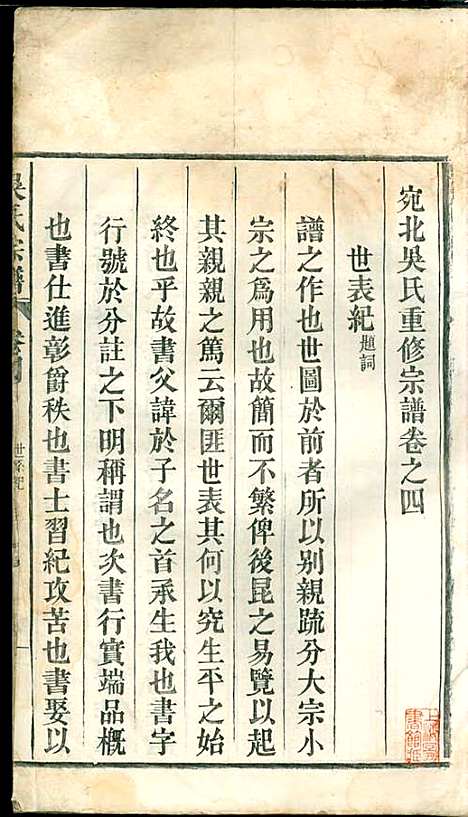 宛北吳氏重修宗譜卷之四
世表紀 題詞
譜之作也世圖於前者所以别親疏分大宗小
宗之爲用也故簡而不繁俾後昆之易覽以起
其親親之篤云爾匪世表其何以究生平之始
終也乎故書父諱於子名之首承生我也書字
行號於分註之下明稱謂也次書行實端品槪
也書仕進彰爵秩也書士習紀攻苦也書娶以
吳氏宗譜
世表紀